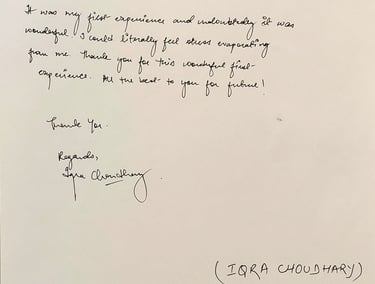 It was my first experience and undoubtedly it was
wonderful. I could literally feel stress evaporating
from me. Thank you for this wonderful first
experience. All the best to you for future!
Thank You.
Regards,
Iqra Choudhary.
(IQRA CHOUDHARY)